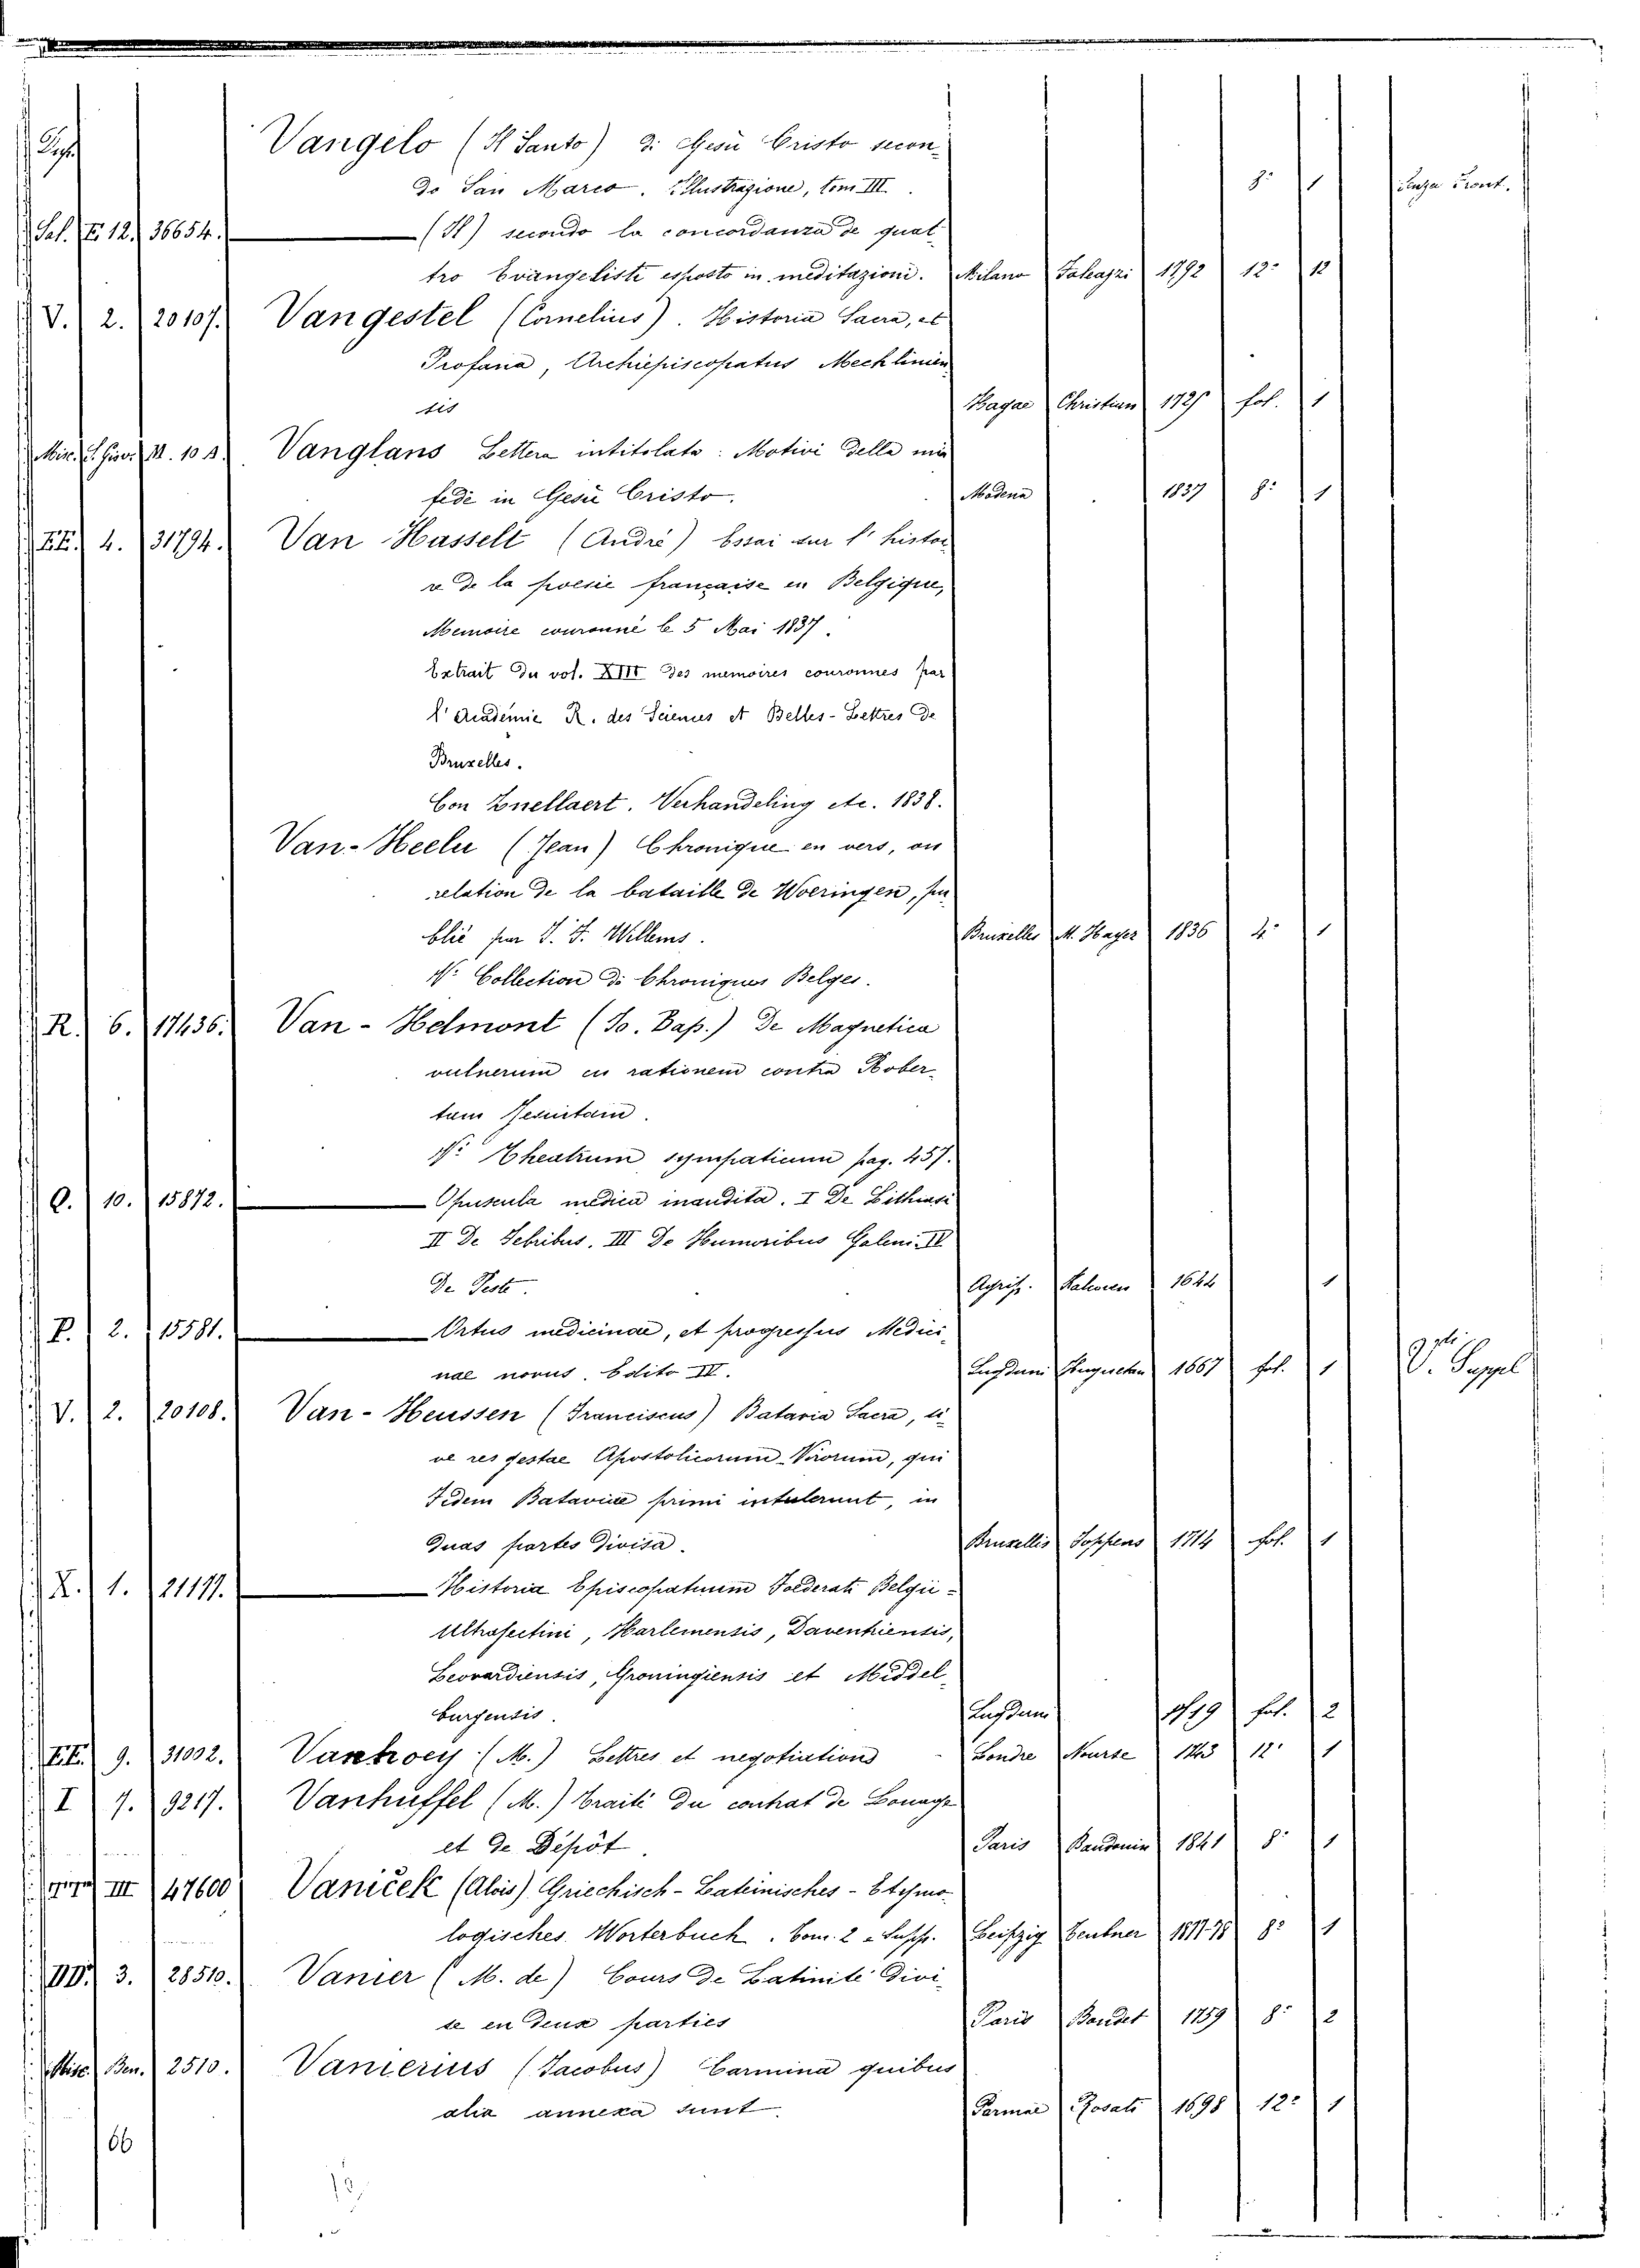 Vangelo (Il Santo) di Gesù Cristo secon-
do San Marco. Illustrazione, tom III. 8° 1 senza Front.
Sal. E. 12. 36654. (Il) secondo la concordanza de quat-
tro Evangelisti esposto in meditazioni. Milano Galeazzi 1792 12° 12
V. 2. 20107. Vangestel (Cornelius). Historia Sacra, et
Profana, Archiepiscopatus Mechlinien
sis Hagae Christian 1725 fol. 1
Vanglans Lettera intitolata: Motivi della mia
fede in Gesù Cristo. Modena 1837 8° 1
EE. 4. 31794. Van Hasselt (André) Essai sur l'histoi
re de la poesie française en Belgique,
Memoire couronné le 5 Mai 1837.
Extrait du vol. XIII des memoires couronnes par
l'Academie R. des Sciences et Belles-Lettres de
Bruxelles.
Con Snellaert. Verhandeling etc. 1838.
Van-Heelu (Jean) Chronique en vers, ou
relation de la bataille de Woeringen, pu
blié par J. F. Willems. Bruxelles M. Hayer 1836 4° 1
V: Collection di Chroniques Belges.
R. 6. 17436. Van-Helmont (Jo. Bap.) De Magnetica
vulnerum cu rationem contra Rober-
tum Jesuitam.
V: Theatrum sympaticum pag. 457.
Q. 10. 15872. Opuscula medica inaudita. I De Lithiasi
II De Febribus. III De Humoribus Galeni. IV
De Peste. Agripp. 1644 1
P. 2. 15581. Ortus medicinae, et progressus Medici-
nae novus. Edito IV. Lugduni 1667 fol. 1 V. Suppl
V. 2. 20108. Van-Heussen (Franciscus) Batavia Sacra, si-
ve res gestae Apostolicorum Virorum, qui
Fidem Bataviae primi intulerunt, in
duas partes divisa. Bruxellis Foppens 1714 fol. 1
X. 1. 21177. Historia Episcopatuum Foederati Belgii-
Ultrajectini, Harlemensis, Daventriensis,
Leovardiensis, Groningiensis et Middel-
burgensis. Lugdun 1719 fol. 2
EE. 9. 31002. Vanhoey (M.) Lettres et negotiations Londre Nourse 1743 12° 1
I 7. 9217. Vanhuffel (M.) Traité du contrat de Louage
et de Dépôt. Paris Baudouin 1841 8° 1
III 47600 Vaniček (Alois) Griechisch-Lateinisches-Etymo-
logisches Worterbuch. Tom. 2 e Supp. Leipzig Teubner 1877-78 8° 1
DD. 3. 28510. Vanier (M. de) Cours de Latinité divi-
se en deux parties Paris Boudet 1759 8° 2
Misc. Ben. 2510. Vanierius (Jacobus) Carmina quibus
alia annexa sunt. Parmae Rosati 1698 12° 1
66
13